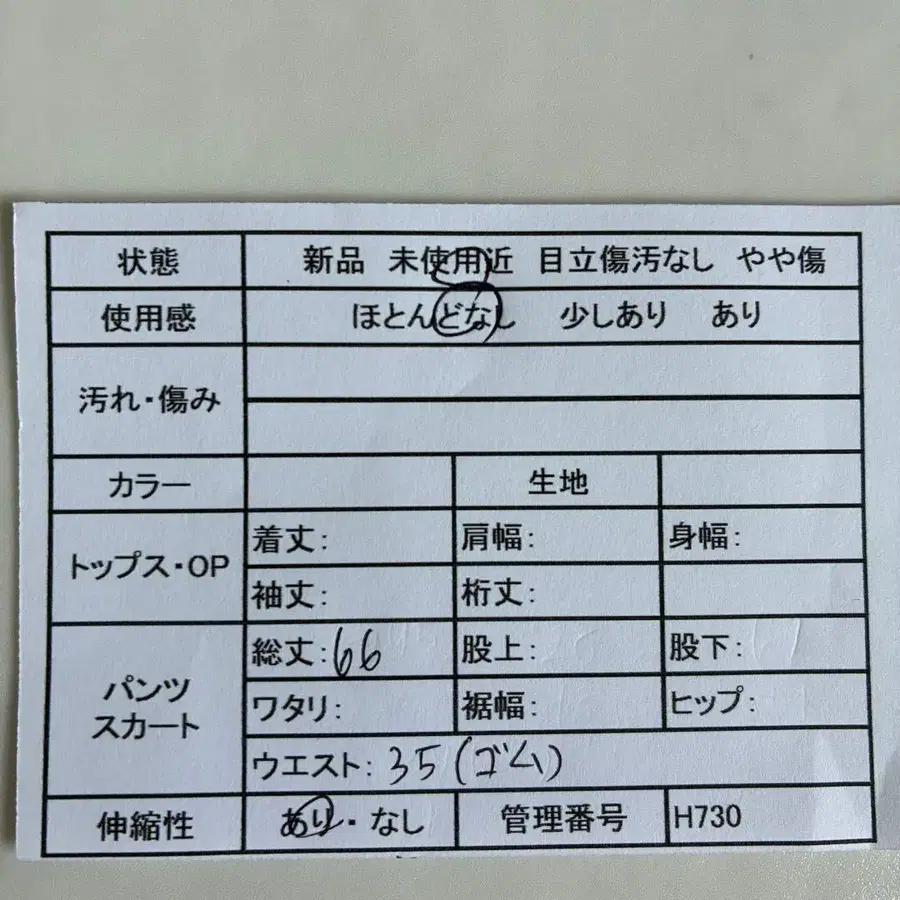 状態 新品 未使用近 目立傷汚なし やや傷
使用感 ほとんどなし 少しあり あり
汚れ・傷み
カラー 生地
トップス・OP 着丈: 肩幅: 身幅:
袖丈: 裄丈:
パンツ
スカート
総丈:66 股上: 股下:
ワタリ: 裾幅: ヒップ:
ウエスト: 35(ゴム)
伸縮性 あり・なし 管理番号 H730